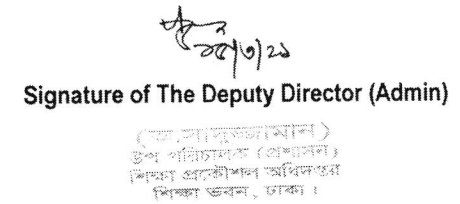 ২৫/৩/২১
Signature of The Deputy Director (Admin)
উপ পরিচালক (প্রশাসন)
শিক্ষা প্রকৌশল অধিদপ্তর
শিক্ষা ভবন, ঢাকা।